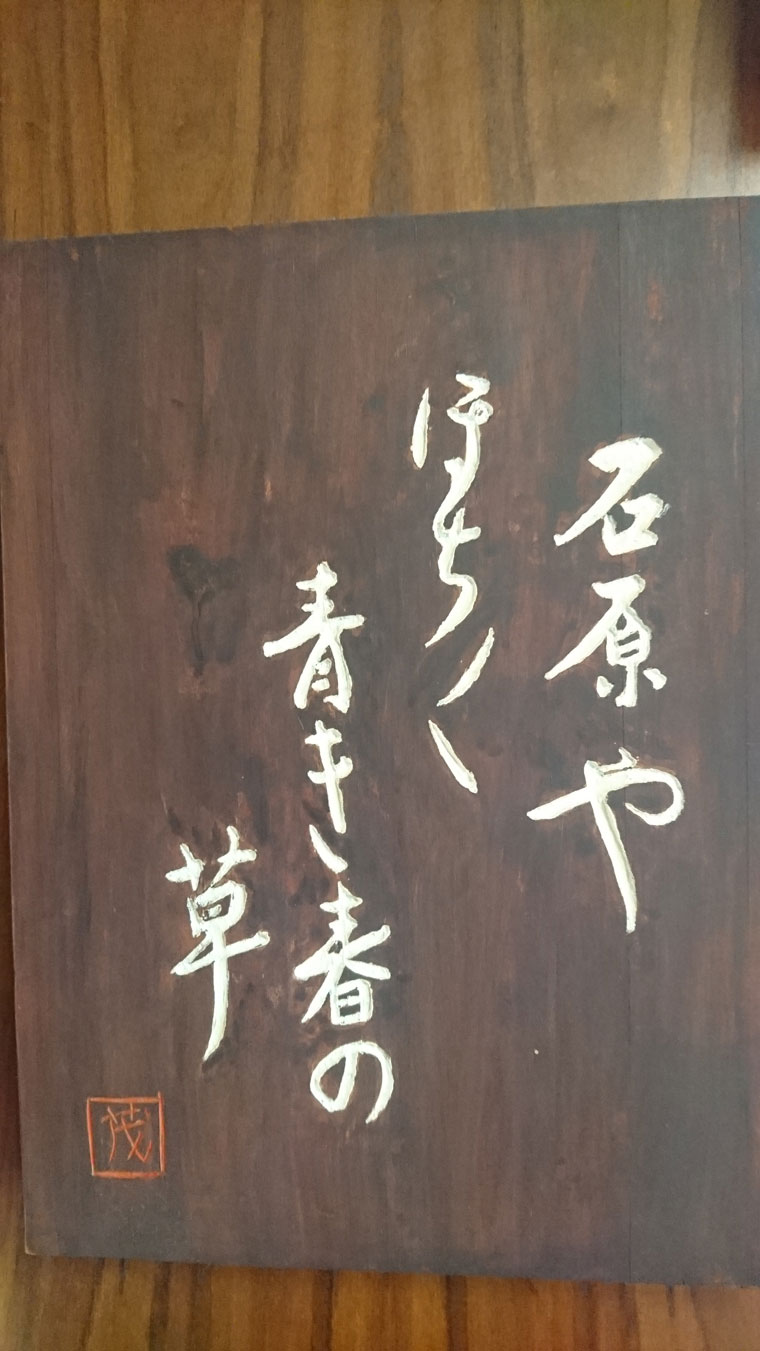 石原や
ほち〳〵
青き春の
草
茂